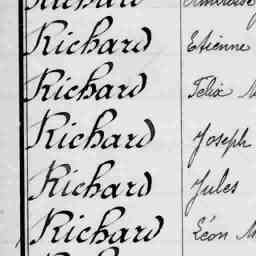 Richard Ambroise
Richard Etienne
Richard Felix M
Richard Joseph
Richard Jules
Richard Léon M